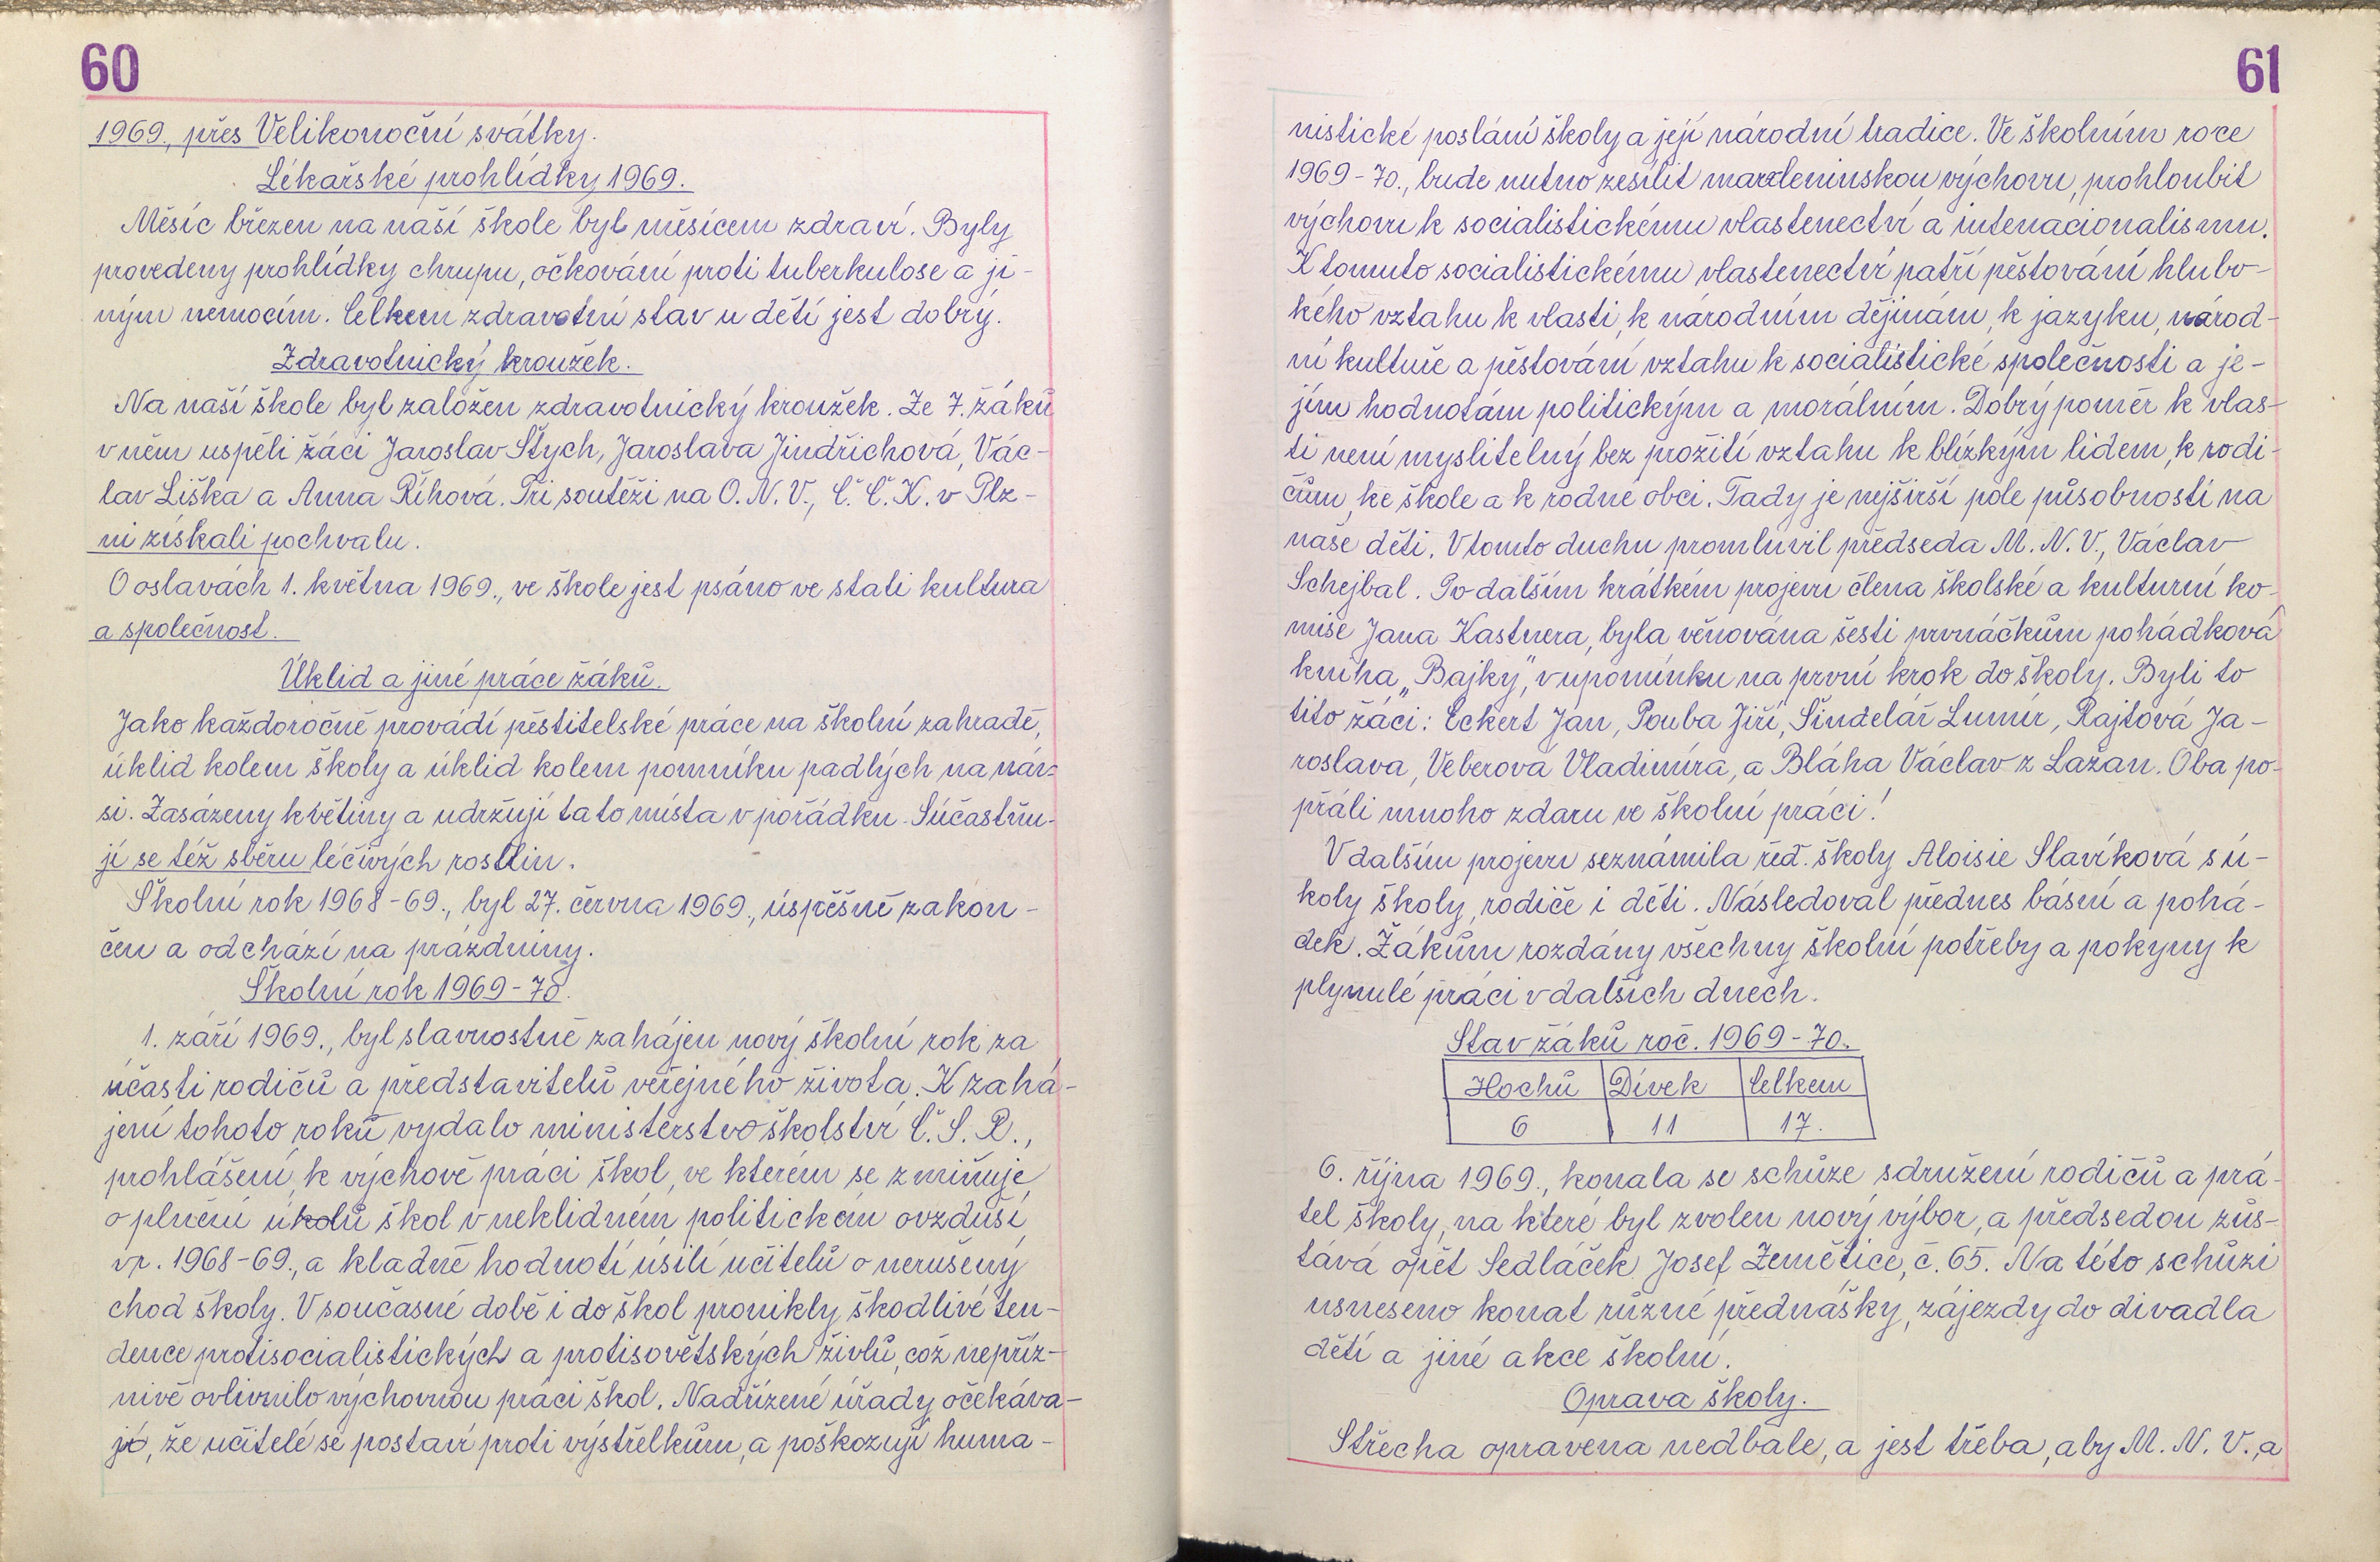 60
1969., přes Velikonoční svátky.
Lékařské prohlídky 1969.
Měsíc březen na naší škole byl měsícem zdraví. Byly
provedeny prohlídky chrupu, očkování proti tuberkulose a ji-
ným nemocím. Celkem zdravotní stav u dětí jest dobrý.
Zdravotnický kroužek.
Na naší škole byl založen zdravotnický kroužek. Ze 7. žáků
v něm uspěli žáci Jaroslav Štych, Jaroslava Jindřichová, Vác-
lav Liška a Anna Říhová. Při soutěži na O. N. V., Č. Č. K. v Plz-
ni získali pochvalu.
O oslavách 1. května 1969., ve škole jest psáno ve stati kultura
a společnost.
Úklid a jiné práce žáků.
Jako každoročně provádí pěstitelské práce na školní zahradě,
úklid kolem školy a úklid kolem pomníku padlých na náv-
si. Zasázeny květiny a udržují tato místa v pořádku. Súčastňu-
jí se též sběru léčivých rostlin.
Školní rok 1968-69., byl 27. června 1969., úspěšně zakon-
čen a odchází na prázdniny.
Školní rok 1969-70.
1. září 1969., byl slavnostně zahájen nový školní rok za
účasti rodičů a představitelů veřejného života. K zahá-
jení tohoto roků vydalo ministerstvo školství Č. S. R.,
prohlášení, k výchově práci škol, ve kterém se zmiňuje
o plnění úkolů škol v neklidném politickém ovzduší,
v r. 1968-69., a kladně hodnotí úsilí učitelů o nerušený
chod školy. V současné době i do škol pronikly škodlivé ten-
dence protisocialistických a protisovětských živlů, což nepříz-
nivě ovlivnilo výchovnou práci škol. Nadřízené úřady očekáva-
jí, že učitelé se postaví proti výstřelkům, a poškozují huma-
61
nistické poslání školy a její národní tradice. Ve školním roce
1969-70., bude nutno zesílit marxleninskou výchovu, prohloubit
výchovu k socialistickému vlastenectví a intenacionalismu.
K tomuto socialistickému vlastenectví patří pěstování hlubo-
kého vztahu k vlasti, k národním dějinám, k jazyku, národ-
ní kultuře a pěstování vztahu k socialistické společnosti a je-
jím hodnotám politickým a morálním. Dobrý poměr k vlas-
ti není myslitelný bez prožití vztahu k blízkým lidem, k rodi-
čům, ke škole a k rodné obci. Tady je nejširší pole působnosti na
naše děti. V tomto duchu promluvil předseda M. N. V., Václav
Schejbal. Po dalším krátkém projevu člena školské a kulturní ko-
mise Jana Kastnera, byla věnována šesti prvňáčkům pohádková
kniha „Bajky", v upomínku na první krok do školy. Byli to
tito žáci: Eckert Jan, Pouba Jiří, Šindelář Lumír, Rajtová Ja-
roslava, Veberová Vladimíra, a Bláha Václav z Lažan. Oba po-
přáli mnoho zdaru ve školní práci!
V dalším projevu seznámila řed. školy Aloisie Slavíková s ú-
koly školy, rodiče i děti. Následoval přednes básní a pohá-
dek. Žákům rozdány všechny školní potřeby a pokyny k
plynulé práci v dalších dnech.
Stav žáků roč. 1969-70.
Hochů Dívek Celkem
6 11 17.
6. října 1969., konala se schůze sdružení rodičů a přá-
tel školy, na které byl zvolen nový výbor, a předsedou zůs-
tává opět Sedláček Josef Zemětice, č. 65. Na této schůzi
usneseno konat různé přednášky, zájezdy do divadla
dětí a jiné akce školní.
Oprava školy.
Střecha opravena nedbale, a jest třeba, aby M. N. V., a